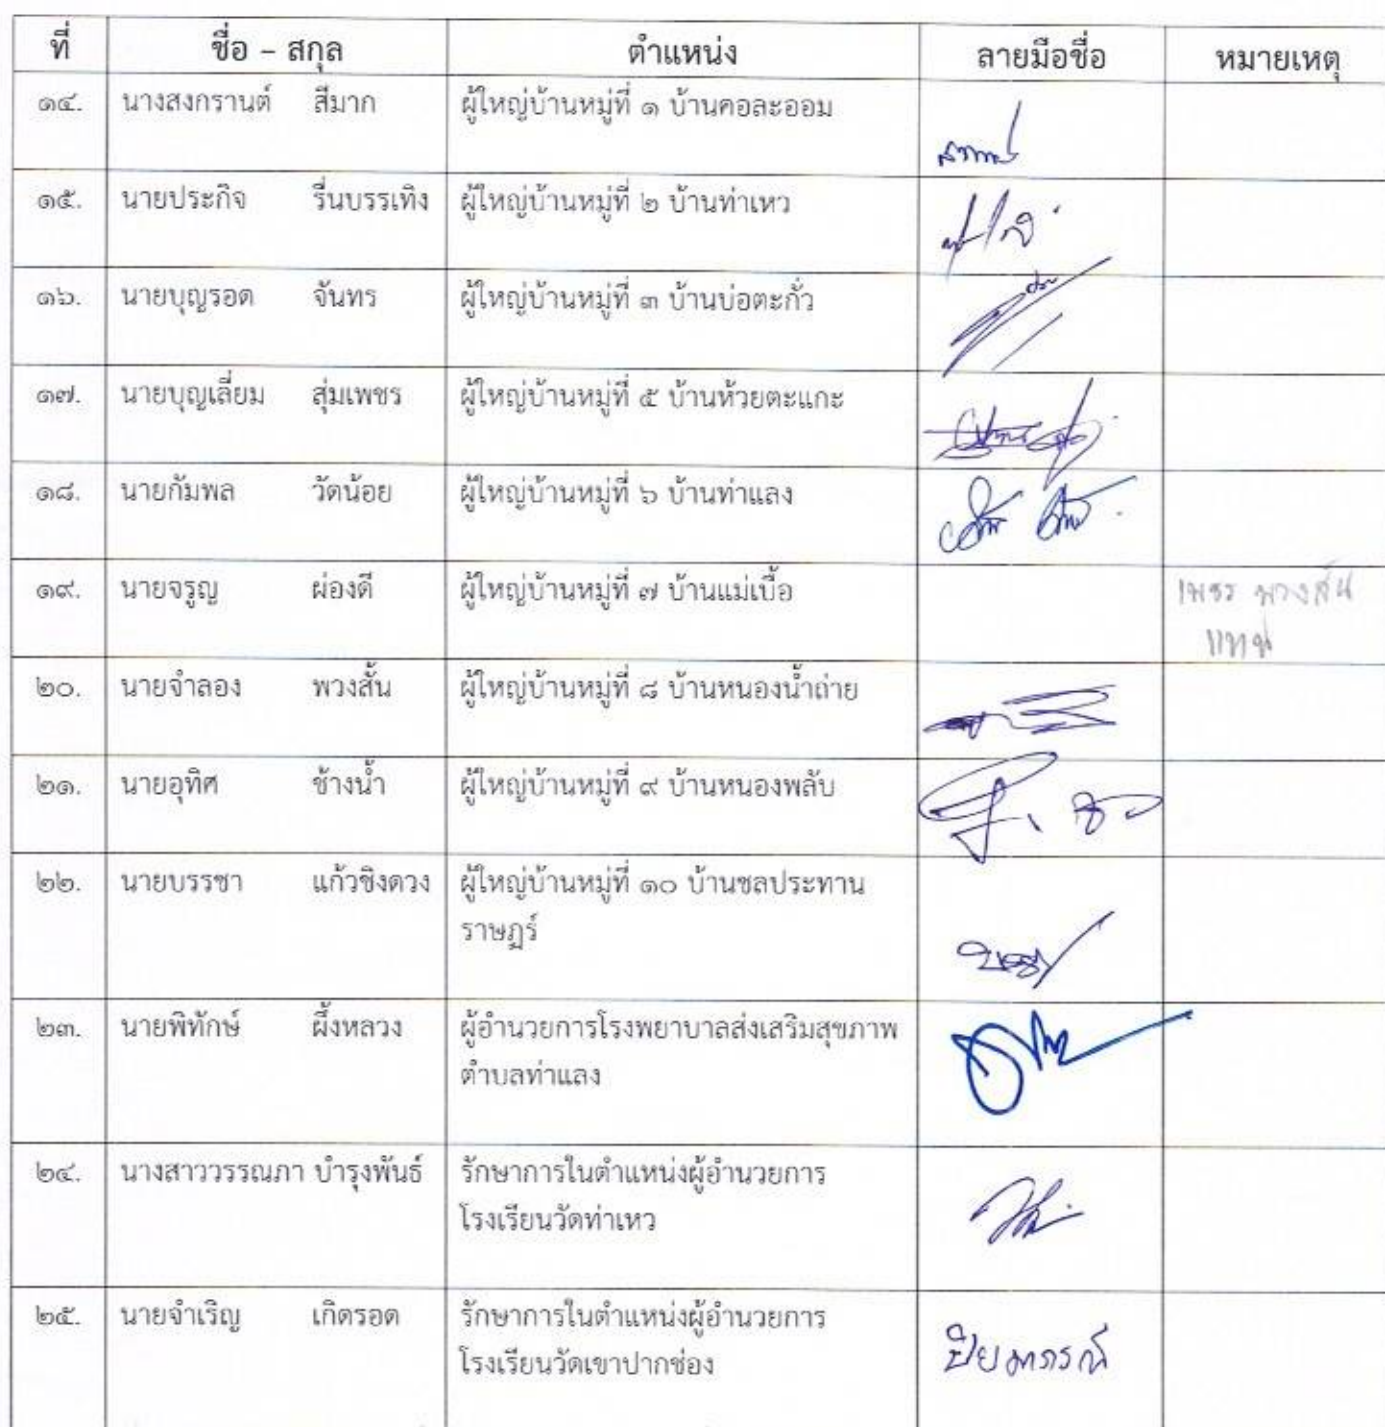 ที่ ชื่อ – สกุล ตำแหน่ง ลายมือชื่อ หมายเหตุ
๑๔. นางสงกรานต์ สีมาก ผู้ใหญ่บ้านหมู่ที่ ๑ บ้านคอละออม
๑๕. นายประกิจ รื่นบรรเทิง ผู้ใหญ่บ้านหมู่ที่ ๒ บ้านท่าเหว
๑๖. นายบุญรอด จันทร ผู้ใหญ่บ้านหมู่ที่ ๓ บ้านบ่อตะกั่ว
๑๗. นายบุญเลี่ยม สุ่มเพชร ผู้ใหญ่บ้านหมู่ที่ ๕ บ้านห้วยตะแกะ
๑๘. นายกัมพล วัดน้อย ผู้ใหญ่บ้านหมู่ที่ ๖ บ้านท่าแลง
๑๙. นายจรูญ ผ่องดี ผู้ใหญ่บ้านหมู่ที่ ๗ บ้านแม่เบื้อ พวงสั้น
แทน
๒๐. นายจำลอง พวงสั้น ผู้ใหญ่บ้านหมู่ที่ ๘ บ้านหนองน้ำถ่าย
๒๑. นายอุทิศ ช้างน้ำ ผู้ใหญ่บ้านหมู่ที่ ๙ บ้านหนองพลับ
๒๒. นายบรรชา แก้วชิงดวง ผู้ใหญ่บ้านหมู่ที่ ๑๐ บ้านชลประทาน
ราษฎร์
๒๓. นายพิทักษ์ ผึ้งหลวง ผู้อำนวยการโรงพยาบาลส่งเสริมสุขภาพ
ตำบลท่าแลง
๒๔. นางสาววรรณภา บำรุงพันธ์ รักษาการในตำแหน่งผู้อำนวยการ
โรงเรียนวัดท่าเหว
๒๕. นายจำเริญ เกิดรอด รักษาการในตำแหน่งผู้อำนวยการ
โรงเรียนวัดเขาปากช่อง ปิยาภรณ์